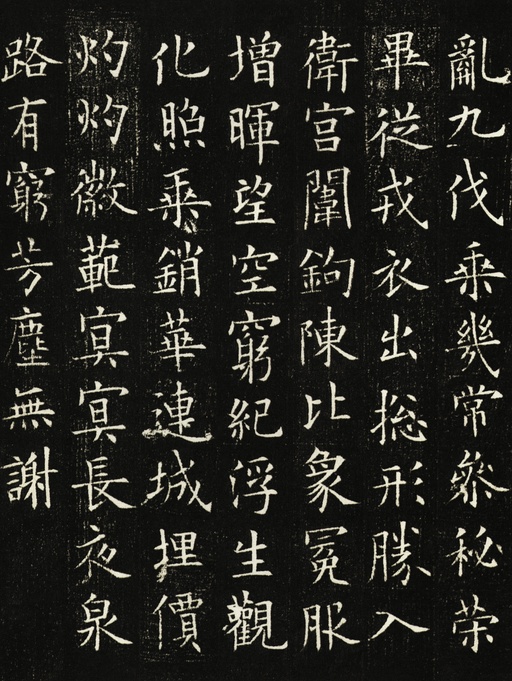 亂九伐乘幾常参秘荣
畢從戎衣出捴形勝入
衛宫闈鉤陳比象冕服
增暉望空窮紀浮生觀
化照乘銷華連城埋價
灼灼徽範冥冥長夜泉
路有窮芳塵無謝